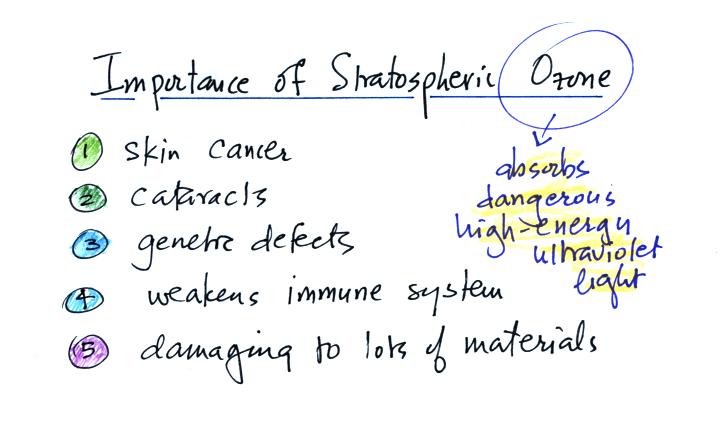 Importance of Stratospheric Ozone
1 skin cancer
2 cataracts
3 genetic defects
4 weakens immune system
5 damaging to lots of materials
absorbs
dangerous
high-energy
ultraviolet
light